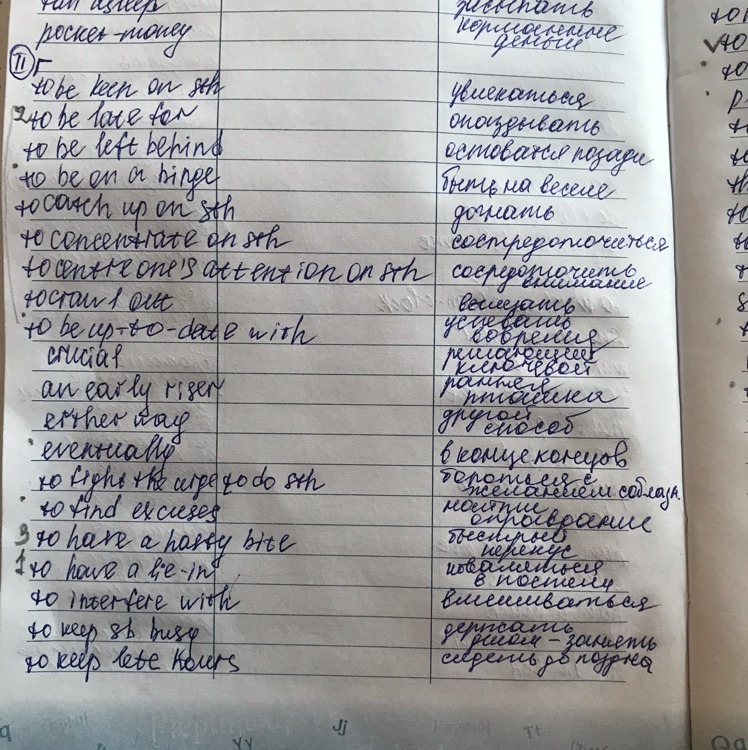 fall asleep засыпать
pocket-money карманные
деньги
II
to be keen on sth увлекаться
2 to be late for опаздывать
to be left behind остоватся позади
to be on a binge быть на веселе
to catch up on sth догнать
to concentrate on sth состредоточиться
to centre one's attention on sth сосредоточить
внимание
to crawl out вылезать
to be up-to-date with успевать
вовремия
crucial решающий
ключевой
an early riser ранняя
пташка
either way другой
способ
eventually в конце концов
to fight the urge to do sth бороться с
желанием соблазн.
to find excuses найти
оправдание
3 to have a hasty bite быстрый
перекус
1 to have a lie-in поваляться
в постели
to interfere with вмешиваться
to keep sb busy держать
делом - занять
to keep late hours сидеть до поздна
Jj
yy
Tt